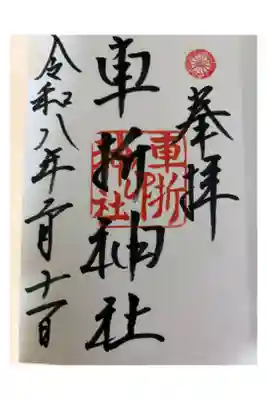 奉拝
車折神社
車折
神社
令和八年二月十一日